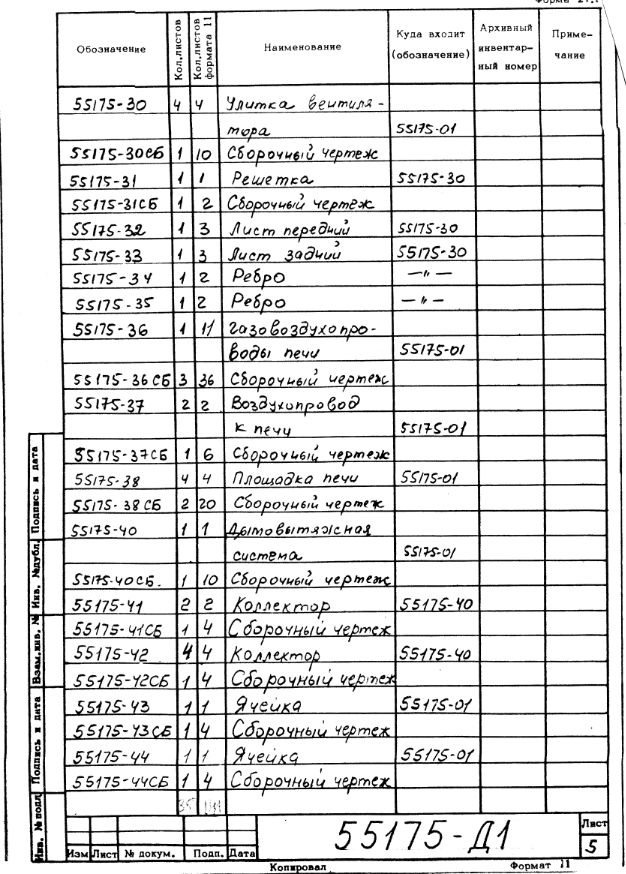 Форма 2
Обозначение Кол.листов Кол.листов формата 11 Наименование Куда входит (обозначение) Архивный инвентар- ный номер Приме- чание
55175-30 4 4 Улитка вентиля-
тора 55175-01
55175-30СБ 1 10 Сборочный чертеж
55175-31 1 1 Решетка 55175-30
55175-31СБ 1 2 Сборочный чертеж
55175-32 1 3 Лист передний 55175-30
55175-33 1 3 Лист задний 55175-30
55175-34 1 2 Ребро —"—
55175-35 1 2 Ребро —"—
55175-36 1 11 Газовоздухопро-
воды печи 55175-01
55175-36СБ 3 36 Сборочный чертеж
55175-37 2 2 Воздухопровод
к печи 55175-01
55175-37СБ 1 6 Сборочный чертеж
55175-38 4 4 Площадка печи 55175-01
55175-38СБ 2 20 Сборочный чертеж
55175-40 1 1 Дымовытяжная
система 55175-01
55175-40СБ. 1 10 Сборочный чертеж
55175-41 2 2 Коллектор 55175-40
55175-41СБ 1 4 Сборочный чертеж
55175-42 4 4 Коллектор 55175-40
55175-42СБ 1 4 Сборочный чертеж
55175-43 1 1 Ячейка 55175-01
55175-43СБ 1 4 Сборочный чертеж
55175-44 1 1 Ячейка 55175-01
55175-44СБ 1 4 Сборочный чертеж
35
Инв. № подл. Подпись и дата Взам.инв. № Инв. №дубл. Подпись и дата
55175-Д1
Лист
5
Изм Лист № докум. Подп. Дата
Копировал Формат 11